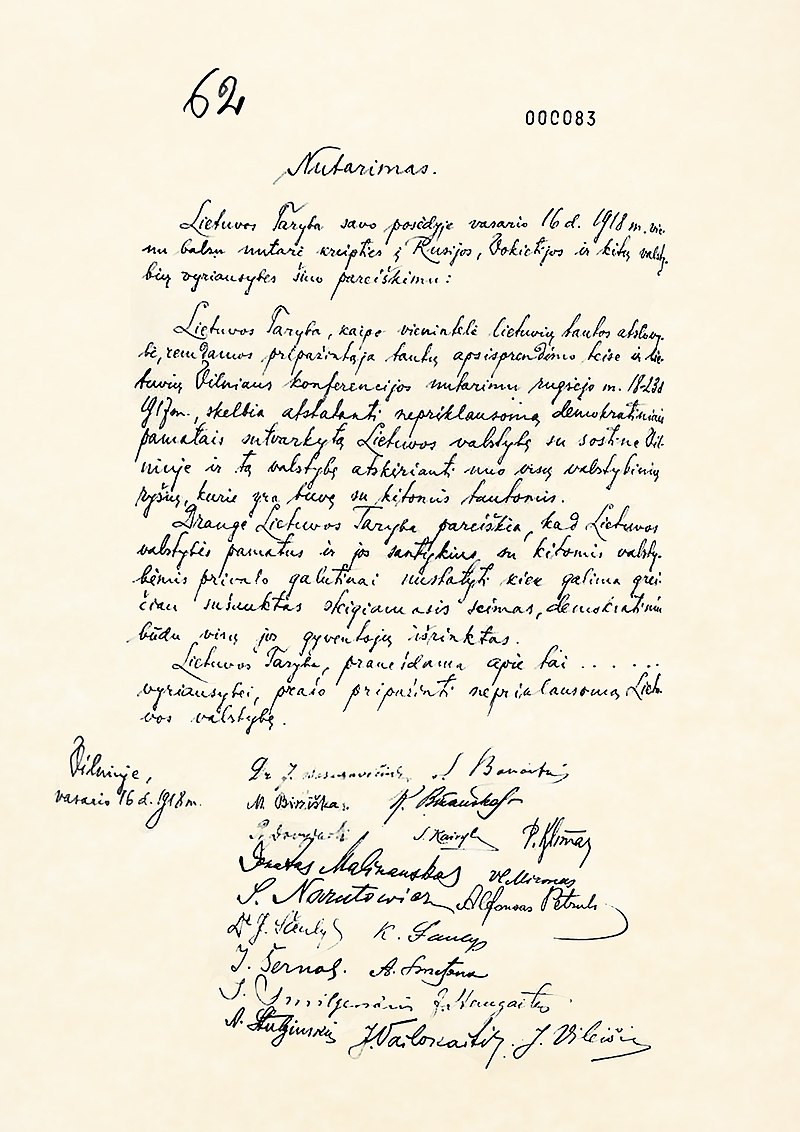 62
000083
Nutarimas.
Lietuvos Taryba savo posėdyje vasario 16 d. 1918 m. vie-
nu balsu nutarė kreipties į Rusijos, Vokietijos ir kitų valsty-
bių vyriausybes šiuo pareiškimu:
Lietuvos Taryba, kaipo vienintelė lietuvių tautos atstovy-
bė, remdamos pripažintąja tautų apsisprendimo teise ir lie-
tuvių Vilniaus konferencijos nutarimu rugsėjo m. 18-23 d
1917 m., skelbia atstatanti nepriklausomą demokratiniais
pamatais sutvarkytą Lietuvos valstybę su sostine Vil-
niuje ir tą valstybę atskirianti nuo visų valstybinių
ryšių, kurie yra buvę su kitomis tautomis.
Drauge Lietuvos Taryba pareiškia, kad Lietuvos
valstybės pamatus ir jos santykius su kitomis valsty-
bėmis privalo galutinai nustatyti kiek galima grei-
čiau sušauktas steigiamasis seimas, demokratiniu
būdu visų jos gyventojų išrinktas.
Lietuvos Taryba, pranešdama apie tai . . . . . .
vyriausybei, prašo pripažinti nepriklausomą Lietu-
vos valstybę.
Vilniuje,
vasario 16 d. 1918 m.
Dr J. S. Banaitis
M. Biržiška. K. Bizauskas
S. Kairys P. Klimas
Donatas Malinauskas Vl. Mironas
S. Narutowicz Alfonsas Petrulis
Dr J. Šaulys K. Šaulys
J. Šernas. A. Smetona
J. Smilgevičius J. Staugaitis
A. Stulginskis J. Vailokaitis. J. Vileišis